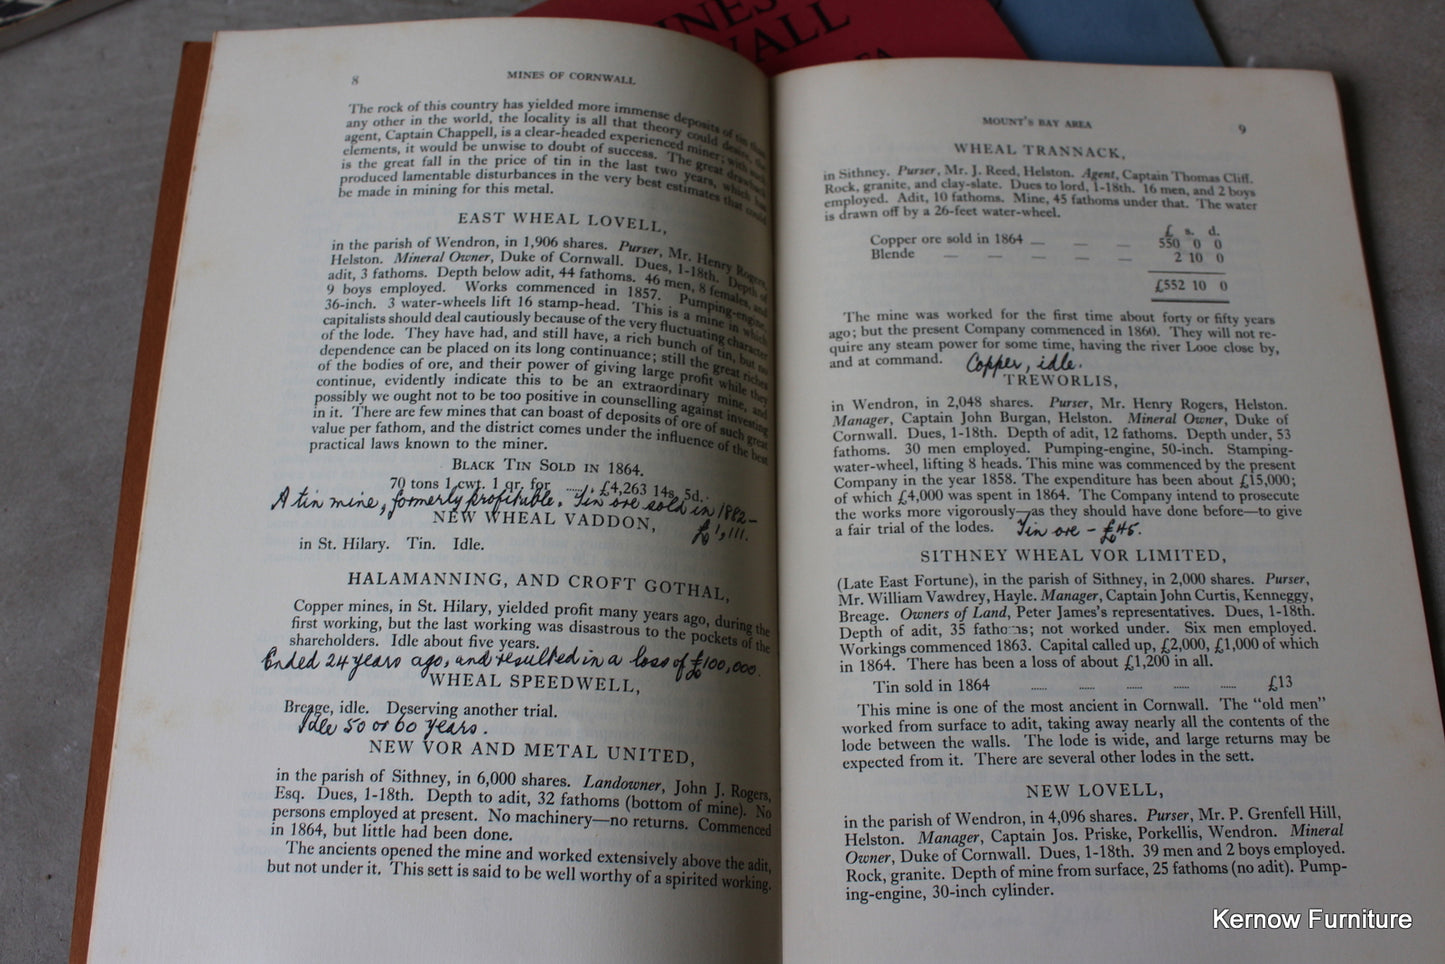 INES
WALL
EA
8
MINES OF CORNWALL
The rock of this country has yielded more immense deposits of tin than
any other in the world, the locality is all that theory could desire, the
agent, Captain Chappell, is a clear-headed experienced miner; with such
elements, it would be unwise to doubt of success. The great drawback
is the great fall in the price of tin in the last two years, which has
produced lamentable disturbances in the very best estimates that could
be made in mining for this metal.
EAST WHEAL LOVELL,
in the parish of Wendron, in 1,906 shares. Purser, Mr. Henry Rogers,
Helston. Mineral Owner, Duke of Cornwall. Dues, 1-18th. Depth of
adit, 3 fathoms. Depth below adit, 44 fathoms. 46 men, 8 females, and
9 boys employed. Works commenced in 1857. Pumping-engine,
36-inch. 3 water-wheels lift 16 stamp-head. This is a mine in which
capitalists should deal cautiously because of the very fluctuating character
of the lode. They have had, and still have, a rich bunch of tin, but no
dependence can be placed on its long continuance; still the great riches
of the bodies of ore, and their power of giving large profit while they
continue, evidently indicate this to be an extraordinary mine, and
possibly we ought not to be too positive in counselling against investing
in it. There are few mines that can boast of deposits of ore of such great
value per fathom, and the district comes under the influence of the best
practical laws known to the miner.
BLACK TIN SOLD IN 1864.
70 tons 1 cwt. 1 qr. for ..... £4,263 14s. 5d.
A tin mine, formerly profitable. Tin ore sold in 1882 –
£1,111.
NEW WHEAL VADDON,
in St. Hilary. Tin. Idle.
HALAMANNING, AND CROFT GOTHAL,
Copper mines, in St. Hilary, yielded profit many years ago, during the
first working, but the last working was disastrous to the pockets of the
shareholders. Idle about five years.
Ended 24 years ago, and resulted in a loss of £100,000.
WHEAL SPEEDWELL,
Breage, idle. Deserving another trial.
Idle 50 or 60 years.
NEW VOR AND METAL UNITED,
in the parish of Sithney, in 6,000 shares. Landowner, John J. Rogers,
Esq. Dues, 1-18th. Depth to adit, 32 fathoms (bottom of mine). No
persons employed at present. No machinery—no returns. Commenced
in 1864, but little had been done.
The ancients opened the mine and worked extensively above the adit,
but not under it. This sett is said to be well worthy of a spirited working.
MOUNT'S BAY AREA
9
WHEAL TRANNACK,
in Sithney. Purser, Mr. J. Reed, Helston. Agent, Captain Thomas Cliff.
Rock, granite, and clay-slate. Dues to lord, 1-18th. 16 men, and 2 boys
employed. Adit, 10 fathoms. Mine, 45 fathoms under that. The water
is drawn off by a 26-feet water-wheel.
£ s. d.
Copper ore sold in 1864 — — — 550 0 0
Blende — — — — — 2 10 0
£552 10 0
The mine was worked for the first time about forty or fifty years
ago; but the present Company commenced in 1860. They will not re-
quire any steam power for some time, having the river Looe close by,
and at command. Copper, idle.
TREWORLIS,
in Wendron, in 2,048 shares. Purser, Mr. Henry Rogers, Helston.
Manager, Captain John Burgan, Helston. Mineral Owner, Duke of
Cornwall. Dues, 1-18th. Depth of adit, 12 fathoms. Depth under, 53
fathoms. 30 men employed. Pumping-engine, 50-inch. Stamping-
water-wheel, lifting 8 heads. This mine was commenced by the present
Company in the year 1858. The expenditure has been about £15,000;
of which £4,000 was spent in 1864. The Company intend to prosecute
the works more vigorously—as they should have done before—to give
a fair trial of the lodes. Tin ore – £45.
SITHNEY WHEAL VOR LIMITED,
(Late East Fortune), in the parish of Sithney, in 2,000 shares. Purser,
Mr. William Vawdrey, Hayle. Manager, Captain John Curtis, Kenneggy,
Breage. Owners of Land, Peter James's representatives. Dues, 1-18th.
Depth of adit, 35 fathoms; not worked under. Six men employed.
Workings commenced 1863. Capital called up, £2,000, £1,000 of which
in 1864. There has been a loss of about £1,200 in all.
Tin sold in 1864 ...... ...... ...... ...... ...... £13
This mine is one of the most ancient in Cornwall. The "old men"
worked from surface to adit, taking away nearly all the contents of the
lode between the walls. The lode is wide, and large returns may be
expected from it. There are several other lodes in the sett.
NEW LOVELL,
in the parish of Wendron, in 4,096 shares. Purser, Mr. P. Grenfell Hill,
Helston. Manager, Captain Jos. Priske, Porkellis, Wendron. Mineral
Owner, Duke of Cornwall. Dues, 1-18th. 39 men and 2 boys employed.
Rock, granite. Depth of mine from surface, 25 fathoms (no adit). Pump-
ing-engine, 30-inch cylinder.
Kernow Furniture